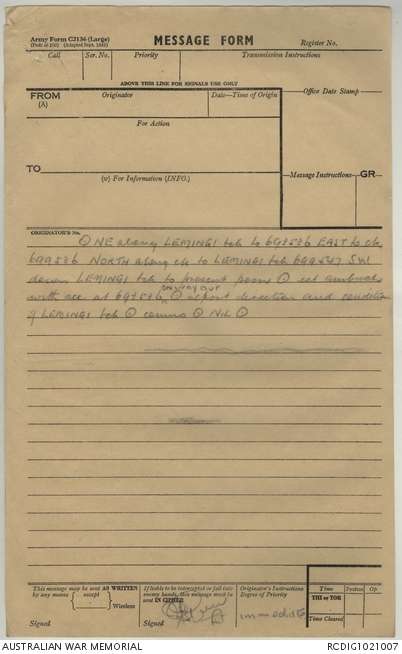 Army Form C2136 (Large)
MESSAGE FORM
Register No.
Call Ser. No. Priority Transmission Instructions
ABOVE THIS LINE FOR SIGNALS USE ONLY
FROM
(A)
Originator
Date—Time of Origin
Office Date Stamp
For Action
TO
(W) For Information (INFO.)
Message Instructions
GR
ORIGINATOR'S No.
NE along LEMINGI tck to 698586 EAST to ck
699586 NORTH along ck to LEMINGI tck 699587 SW
down LEMINGI tck to present posns set ambush
on way out
with at 698586 report direction and condition
of LEMINGI tck comns Nil
This message may be sent AS WRITTEN
by any means except Wireless
If liable to be intercepted or fall into
enemy hands, this message must be
sent IN CIPHER
Originator's Instructions
Degree of Priority
immediate
Time System Op
THI or TOR
Time Cleared
Signed
Signed
AUSTRALIAN WAR MEMORIAL
RCDIG1021007